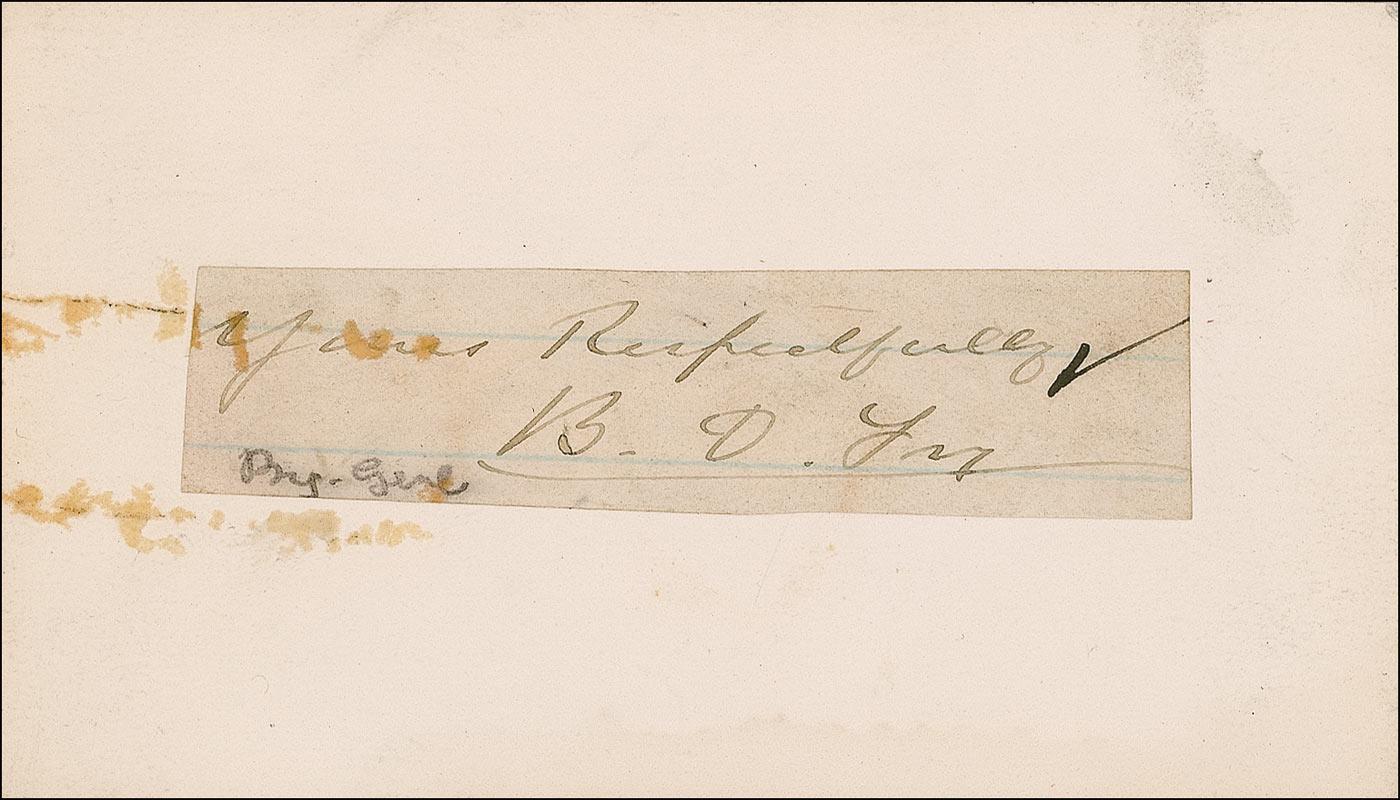 Yours Respectfully
B. D. Fry
Brg. Genl